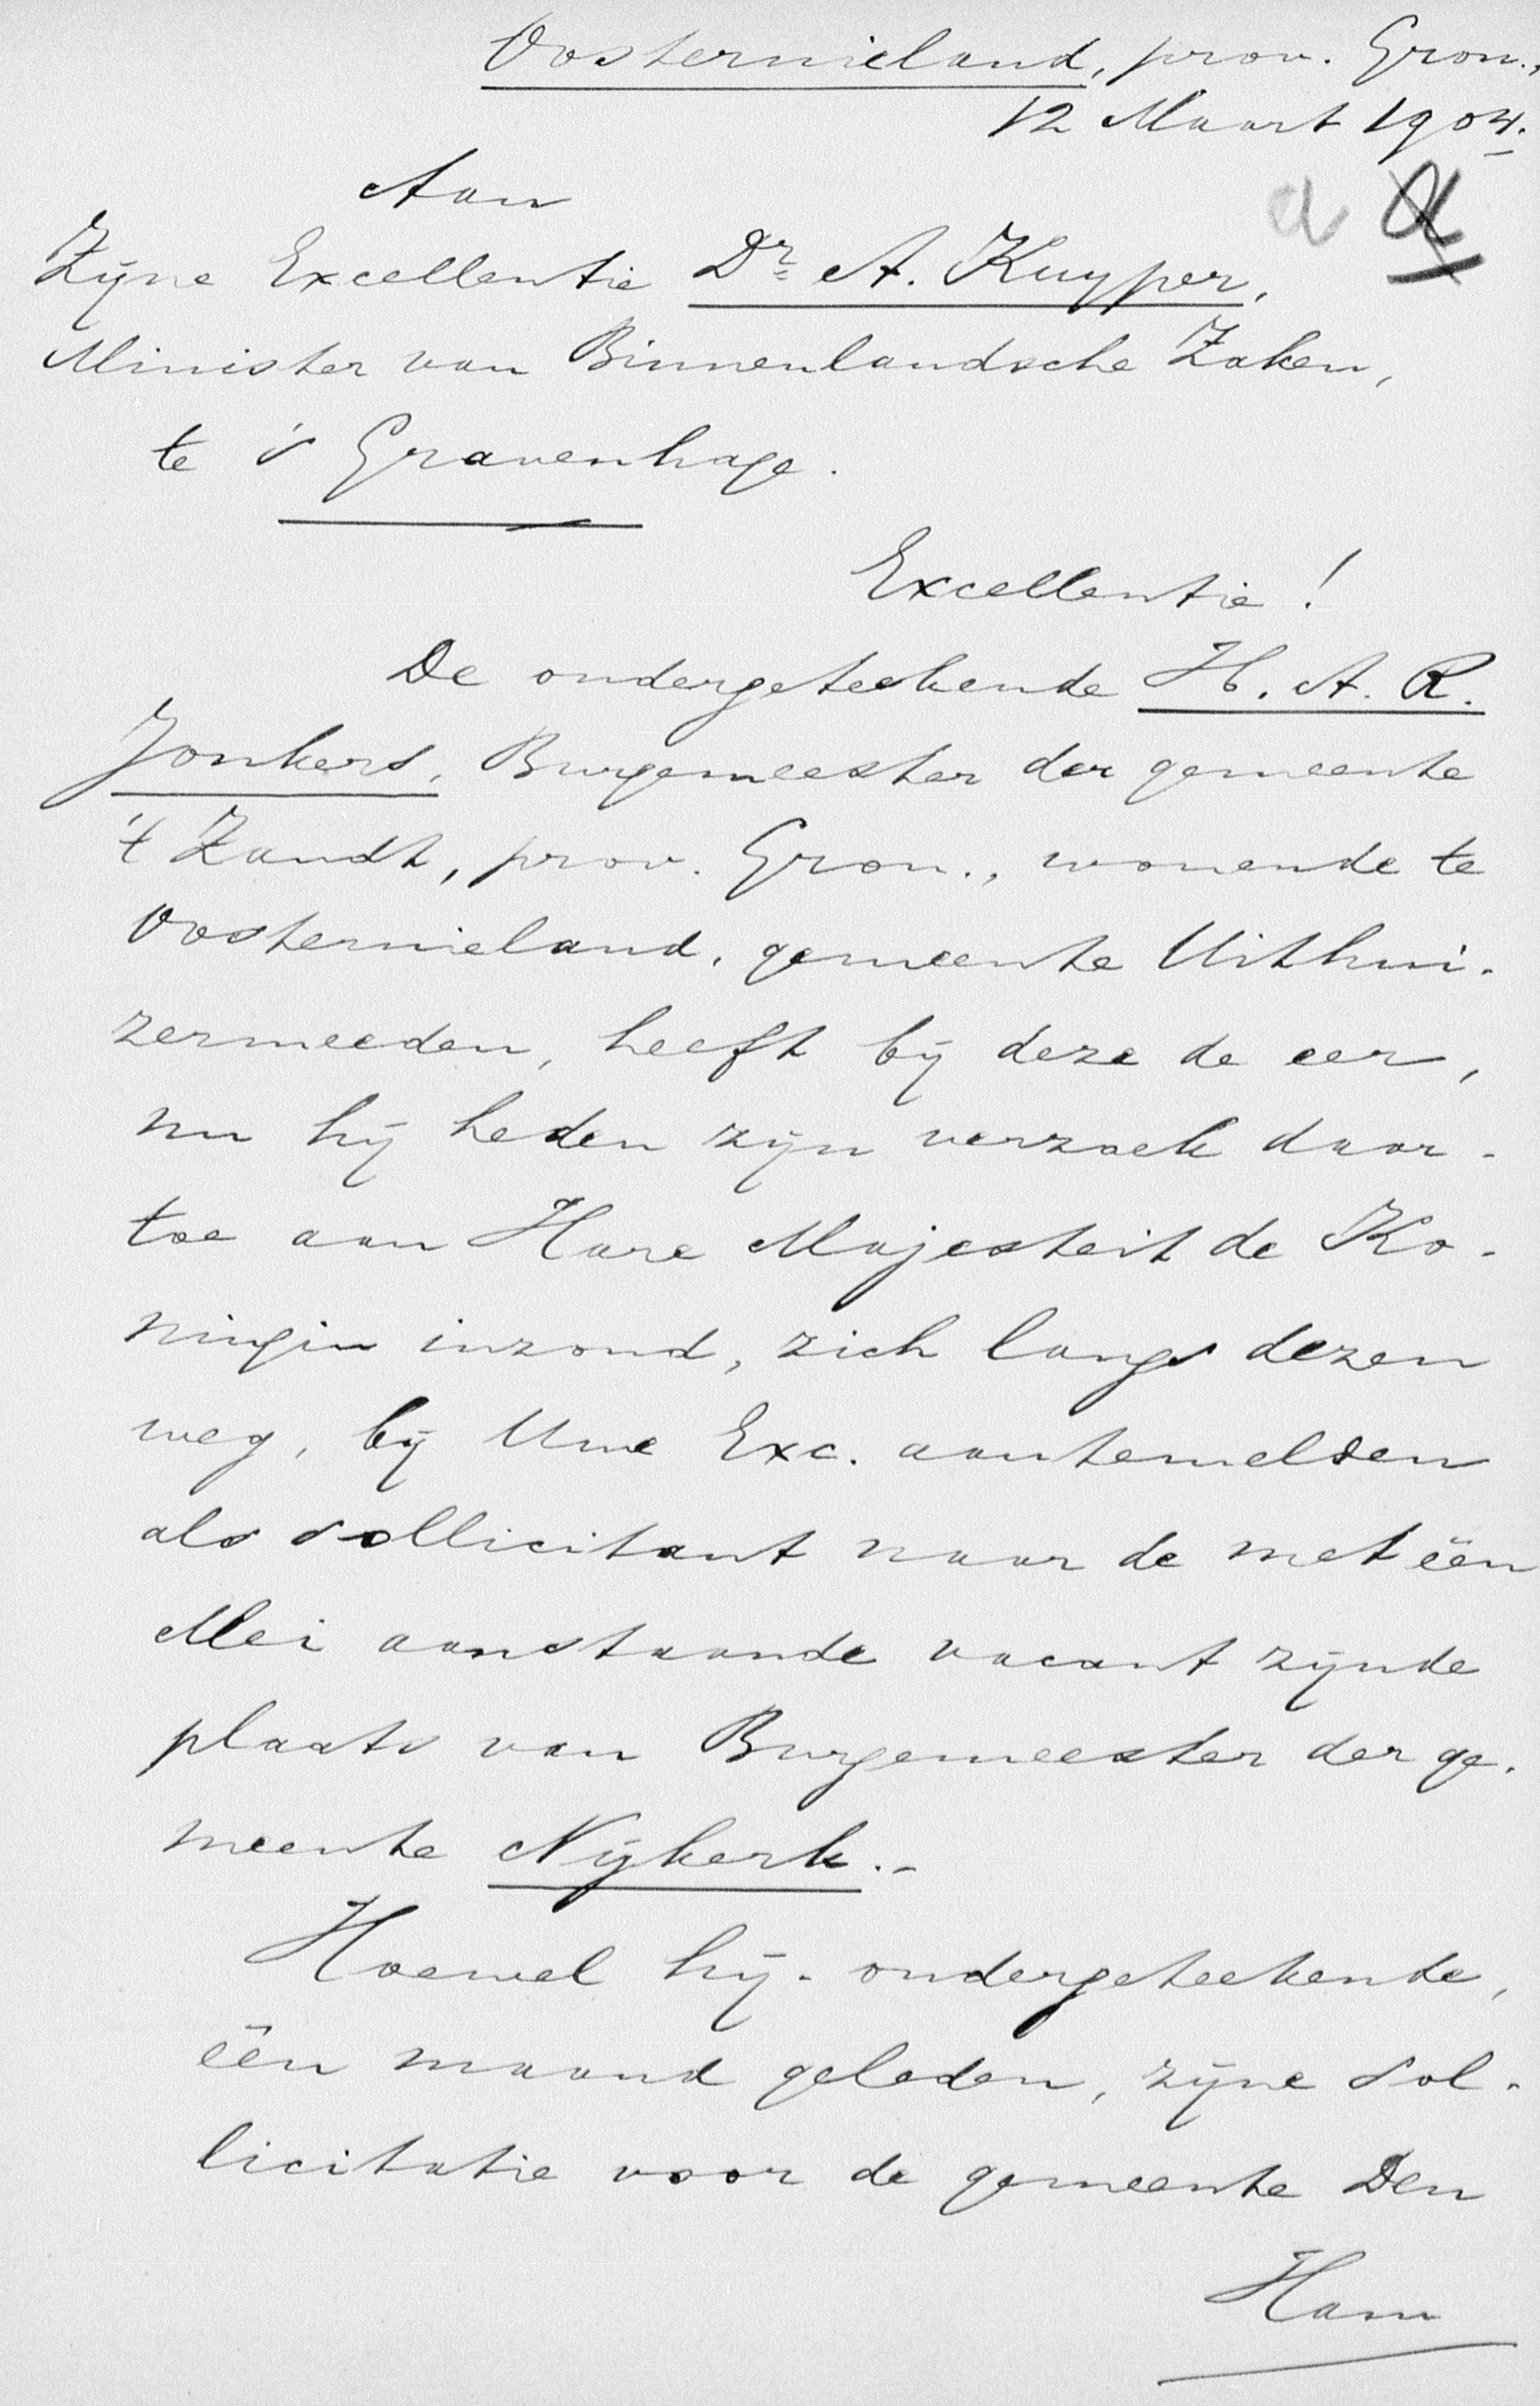 Oosternieland, prov. Gron.,
12 Maart 1904.
a a
Aan
Zijne Excellentie Dr. A. Kuyper,
Minister van Binnenlandsche Zaken,
te 's Gravenhage.
Excellentie!
De ondergeteekende H. A. R.
Jonkers, Burgemeester der gemeente
't Zandt, prov. Gron., wonende te
Oosternieland, gemeente Uithui-
zermeeden, heeft bij deze de eer,
nu hij heden zijn verzoek daar-
toe aan Hare Majesteit de Ko-
ningin inzond, zich langs dezen
weg, bij Uwe Exc. aantemelden
als sollicitant naar de met één
Mei aanstaande vacant zijnde
plaats van Burgemeester der ge-
meente Nijkerk.-
Hoewel hij- ondergeteekende,
één maand geleden, zijne sol-
licitatie voor de gemeente Den
Ham